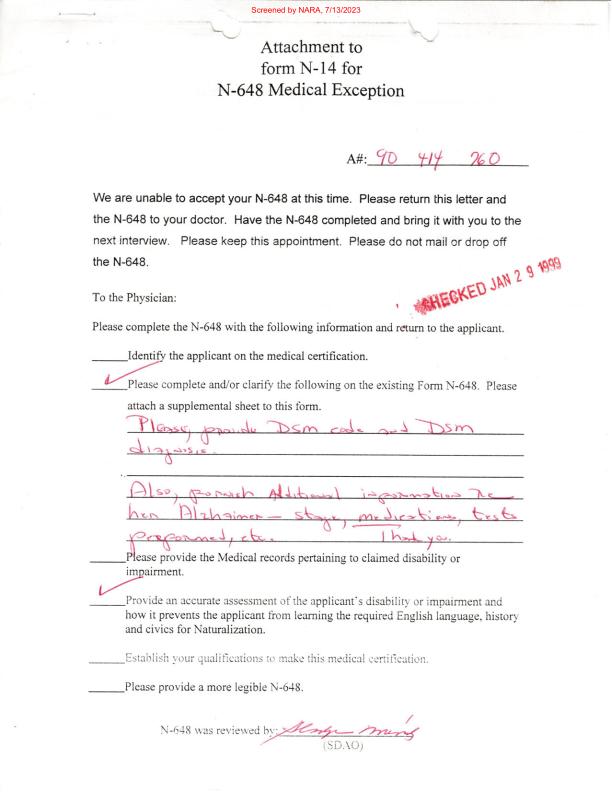 Screened by NARA, 7/13/2023
Attachment to
form N-14 for
N-648 Medical Exception
A#: 90 414 760
We are unable to accept your N-648 at this time. Please return this letter and
the N-648 to your doctor. Have the N-648 completed and bring it with you to the
next interview. Please keep this appointment. Please do not mail or drop off
the N-648.
CHECKED JAN 29 1999
To the Physician:
Please complete the N-648 with the following information and return to the applicant.
______Identify the applicant on the medical certification.
______Please complete and/or clarify the following on the existing Form N-648. Please
attach a supplemental sheet to this form.
Please, provide DSM code and DSM
diagnosis.
Also, additional information re
her Alzhaimer - stage, medications, tests
preformed, etc. Thank you.
______Please provide the Medical records pertaining to claimed disability or
impairment.
______Provide an accurate assessment of the applicant's disability or impairment and
how it prevents the applicant from learning the required English language, history
and civics for Naturalization.
______Establish your qualifications to make this medical certification.
______Please provide a more legible N-648.
N-648 was reviewed by:
(SDAO)